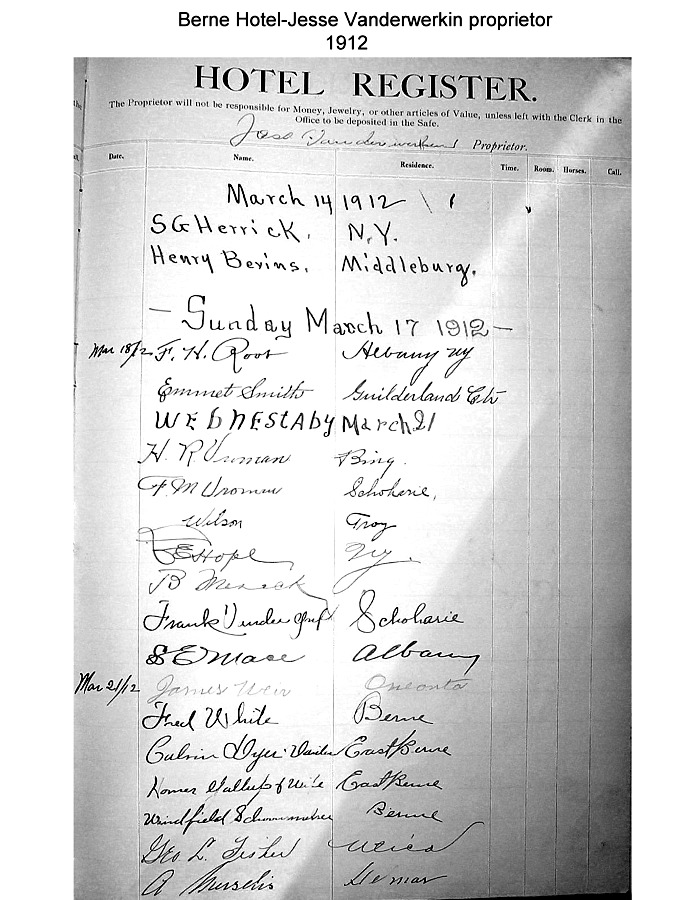 Berne Hotel-Jesse Vanderwerkin proprietor
1912
HOTEL REGISTER.
The Proprietor will not be responsible for Money, Jewelry, or other articles of Value, unless left with the Clerk in the
Office to be deposited in the Safe.
Jess Vanderwerken Proprietor.
Date. Name. Residence. Time. Room. Horses. Call.
March 14 1912
S G Herrick. N.Y.
Henry Bevins. Middleburg.
- Sunday March 17 1912 -
Mar 18/12 F. H. Root Albany NY
Emmet Smith Guilderland Ctr
WEDNESTAby March 21
H. R Vroman Bing.
F. M Vroman Schoharie,
Wilson Troy
Hope NY.
B
Frank Schoharie
S E Mace Albany
Mar 21/12 James Weir Oneonta
Fred White Berne
Calvin Dyer East Berne
Homer Gallup & Wife East Berne
Windfield Berne
Geo L. Fisher Utica
A